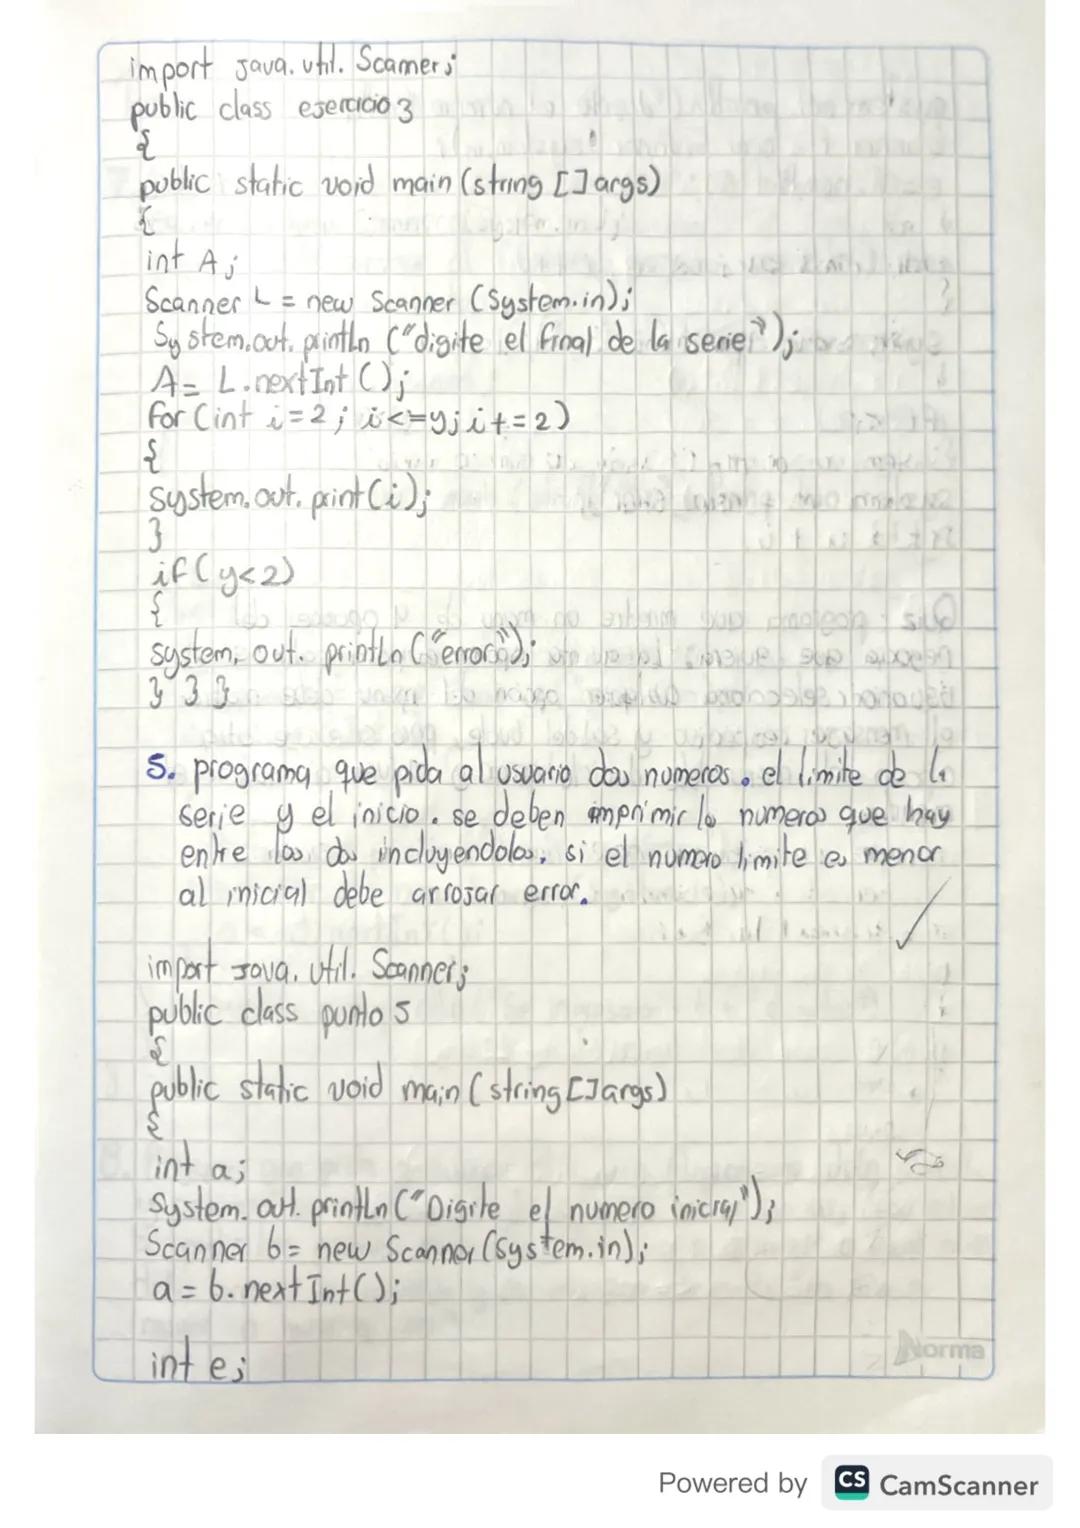 import java.util.Scanner;
public class ejercicio 3
{
public static void main (string []args)
{
int A;
Scanner L = new Scanner (System.in);
System.out.println ("digite el final de la serie");
A= L.nextInt ();
for (int i=2; i<=y; i+=2)
{
system.out.print(i);
}
if (y<2)
{
system, out. println ("error");
} } }
5. programa que pida al usuario dos numeros. el limite de la
serie y el inicio. se deben imprimir lo numeros que hay
entre los dos incluyendolos, si el numero limite es menor
al inicial debe arrojar error.
import java.util.Scanner;
public class punto 5
{
public static void main (string []args)
{
int a;
System.out.println ("Digite el numero inicial");
Scanner b= new Scanner (system.in);
a = b.nextInt();
int e;
Norma
Powered by CS CamScanner